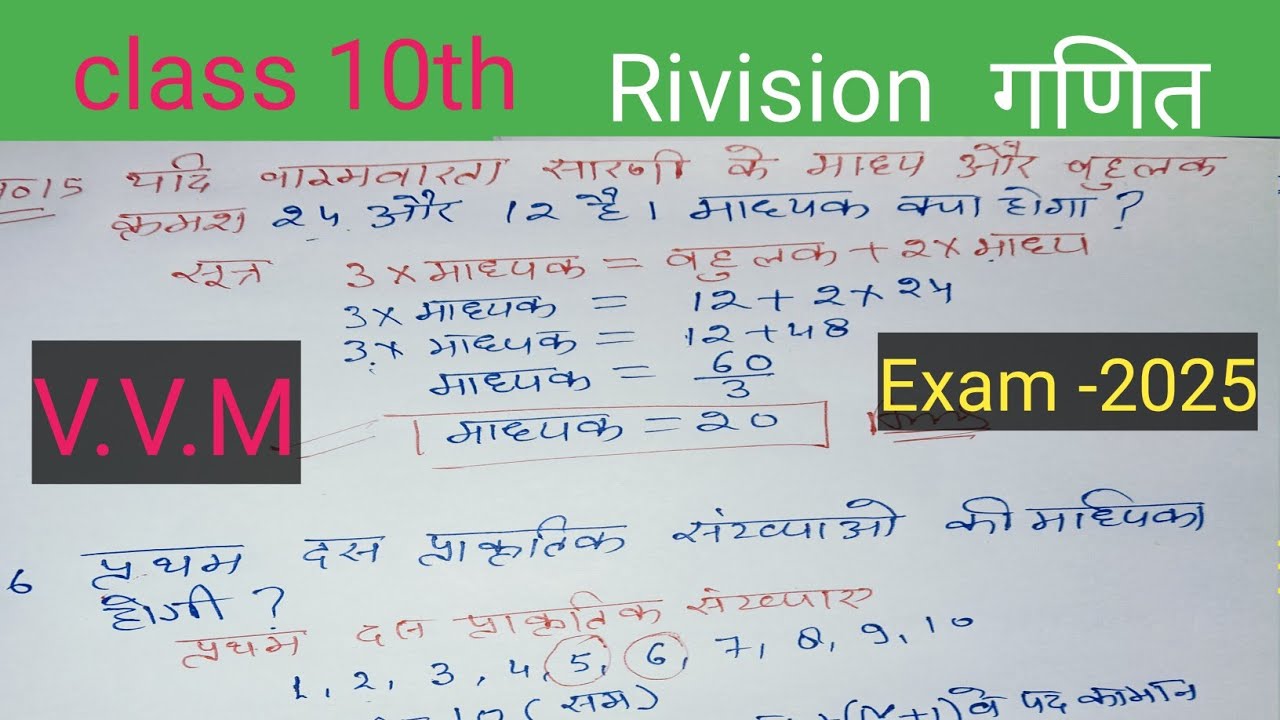 class 10th Rivision गणित
यदि बारम्वारता सारणी के माध्य और बहुलक
क्रमश 24 और 12 है। माध्यक क्या होगा ?
सूत्र 3 × माध्यक = बहुलक + 2 × माध्य
3 × माध्यक = 12 + 2 × 24
3 × माध्यक = 12 + 48
माध्यक = 60/3
माध्यक = 20
V.V.M
Exam -2025
6 प्रथम दस प्राकृतिक संख्याओ की माध्यिका
होगी ?
प्रथम दस प्राकृतिक संख्याए
1, 2, 3, 4, 5, 6, 7, 8, 9, 10
(सम)
(N+1) वे पद का मान